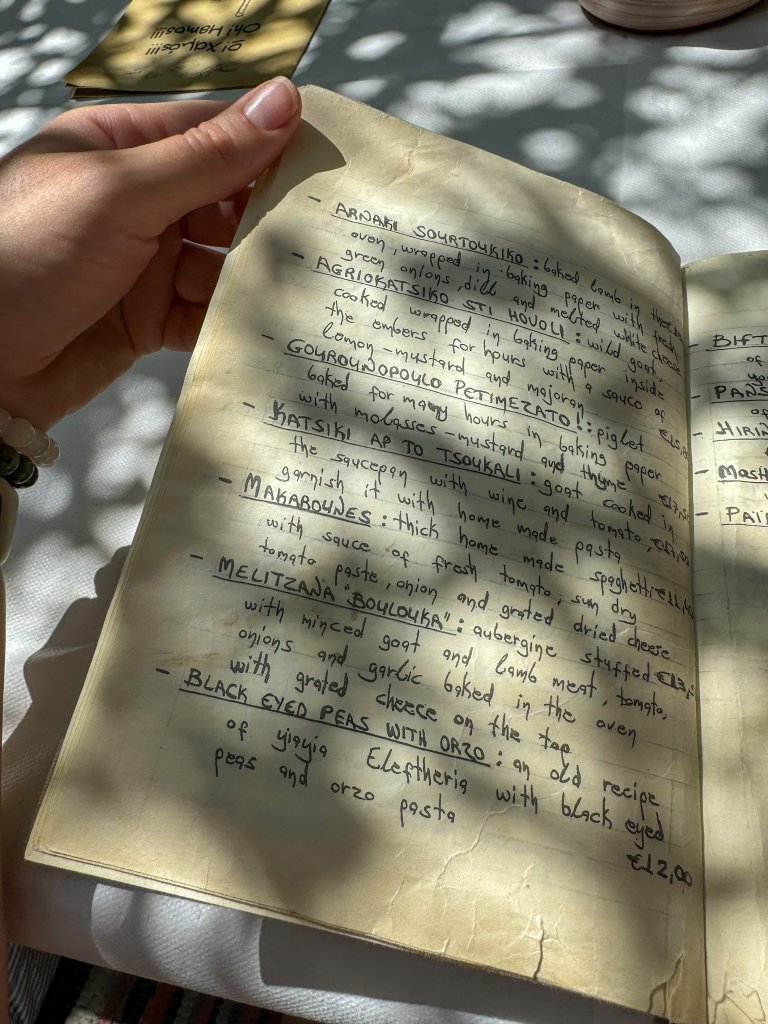 - ARNAKI SOURTOUKIKO : baked lamb in the
oven, wrapped in baking paper with fresh
green onions, dill and melted white cheese
- AGRIOKATSIKO STI HOVOLI : wild goat,
cooked wrapped in baking paper inside
the embers for hours with a sauce of
lemon-mustard and majoran
- GOUROUNOPOULO PETIMEZATO! : piglet
baked for many hours in baking paper
with molasses-mustard and thyme
- KATSIKI AP TO TSOUKALI : goat cooked in
the saucepan with wine and tomato,
garnish it with home made pasta
- MAKAROUNES : thick home made spaghetti
with sauce of fresh tomato, sun dry
tomato paste, onion and grated dried cheese
- MELITZANA "BOULOUKA" : aubergine stuffed
with minced goat and lamb meat, tomato,
onions and garlic baked in the oven
with grated cheese on the top
- BLACK EYED PEAS WITH ORZO : an old recipe
of yiayia Eleftheria with black eyed
peas and orzo pasta
€12,00
- BIFT
of
- PANS
- HIRIN
- MASH
- PAID